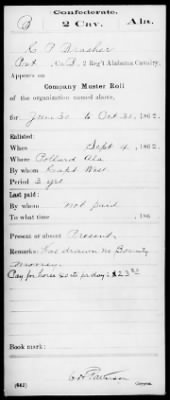 Confederate.
B 2 Cav. Ala.
C P Brasher
Pvt, Co. B, 2 Reg't Alabama Cavalry.
Appears on
Company Muster Roll
of the organization named above,
for June 30 to Oct 31, 1862.
Enlisted:
When Sept 4, 1862.
Where Pollard Ala
By whom Capt West
Period 3 yrs
Last paid:
By whom not paid
To what time , 186 .
Present or absent Present
Remarks: Has drawn no Bounty
money.
Pay for horse
per day: $23
Book mark:
(642) Copyist.